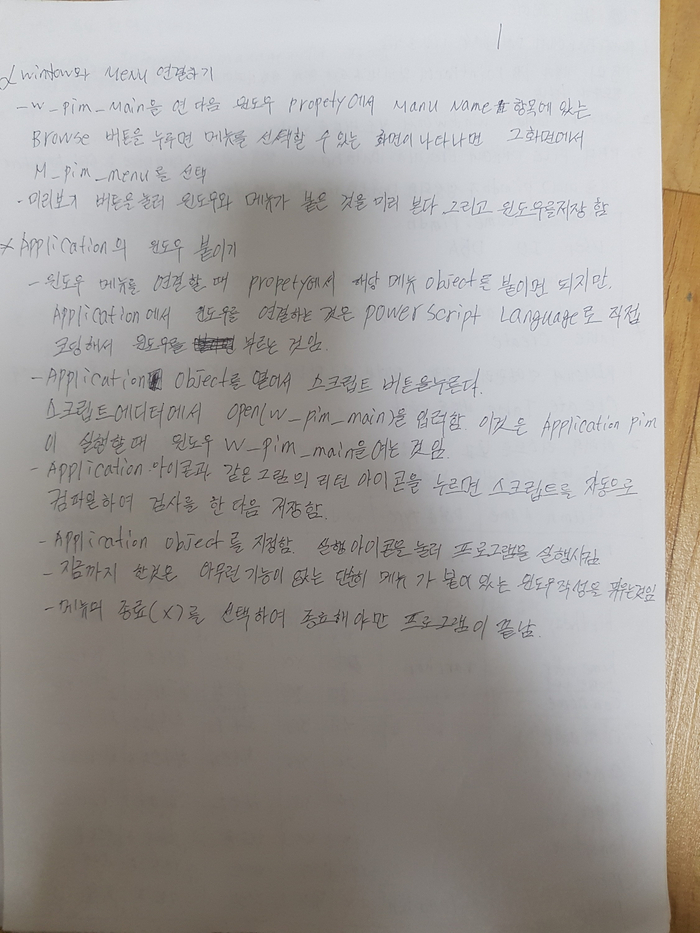 1
× Window와 Menu 연결하기
- W_pim_Main을 연 다음 윈도우 propety에서 Manu Name 항목에 있는
Browse 버튼을 누르면 메뉴를 선택할 수 있는 화면이 나타나면 그 화면에서
M_pim_menu를 선택
- 미리보기 버튼을 눌러 윈도우와 메뉴가 붙은 것을 미리 본다. 그리고 윈도우를 저장 함
× Application의 윈도우 붙이기
- 윈도우 메뉴를 연결할 때 propety에서 해당 메뉴 object를 붙이면 되지만,
Application에서 윈도우를 연결하는 것은 power Script Language로 직접
코딩해서 윈도우를 부르는 것임.
- Application Object를 열어서 스크립트 버튼을 누른다.
스크립트에디터에서 open(W_pim_main)을 입력함. 이것은 Application pim
이 실행할 때 윈도우 W_pim_main을 여는 것임.
- Application 아이콘과 같은 그림의 리턴 아이콘을 누르면 스크립트를 자동으로
컴파일하여 검사를 한 다음 저장함.
- Application Object를 저장함. 실행 아이콘을 눌러 프로그램을 실행시킴
- 지금까지 한것은 아무런 기능이 없는 단순히 메뉴가 붙어 있는 윈도우 작성을 배우는것임
- 메뉴의 종료(X)를 선택하여 종료해야만 프로그램이 끝남.